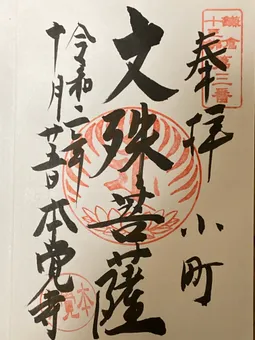 鎌倉
十三佛
第三番
奉拝 小町
文殊菩薩
令和二年
十月廿五日 本覚寺